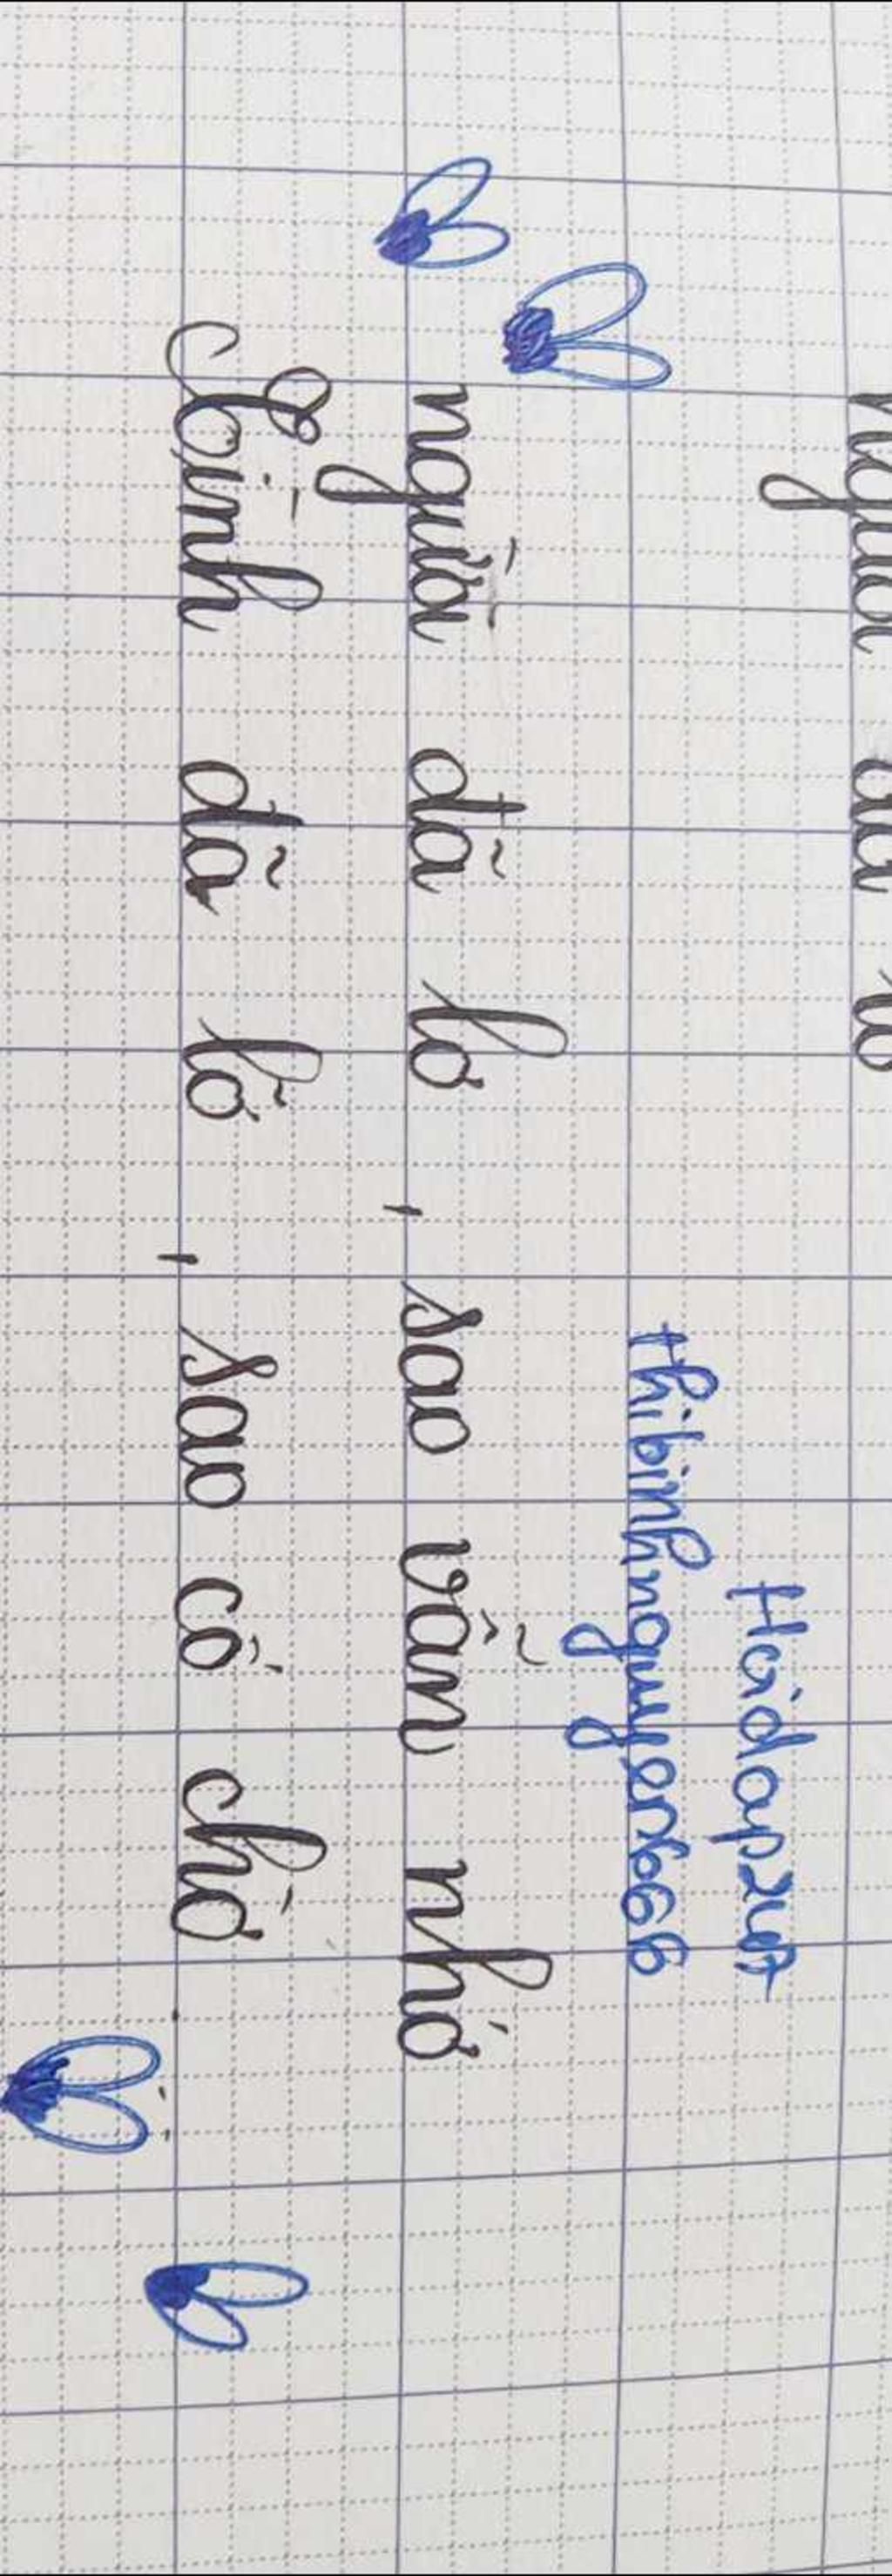 Hoidap247
thibinhnguyen666
người đã lơ , sao vẫn nhớ
Tình dã lỡ , sao cố chờ ...